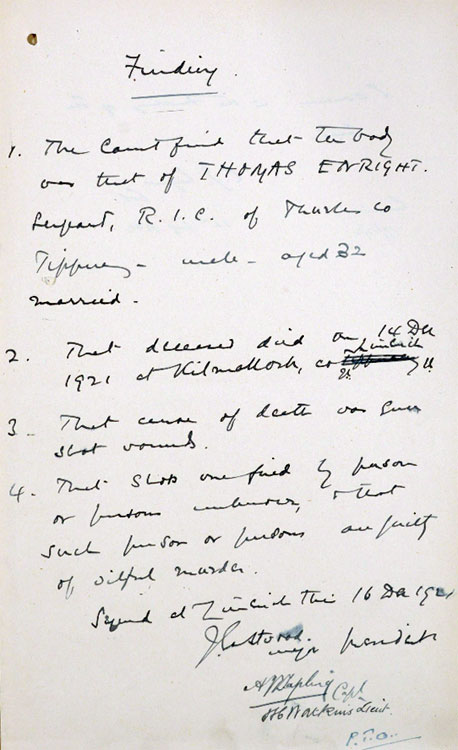 Finding.
1. The Court find that the body
was that of THOMAS ENRIGHT.
Sergeant, R.I.C. of Thurles co
Tipperary - male - aged 32
married.
2. That deceased died on 14 Dec
Limerick
1921 at Kilmallock, co
3 - That cause of death was gun
shot wounds.
4. That shots were fired by person
or persons unknown, & that
such person or persons are guilty
of wilful murder.
Signed at Limerick this 16 Dec 1921
J Eastwood.
Major President
Capt
Watkins Lieut
P.T.O.